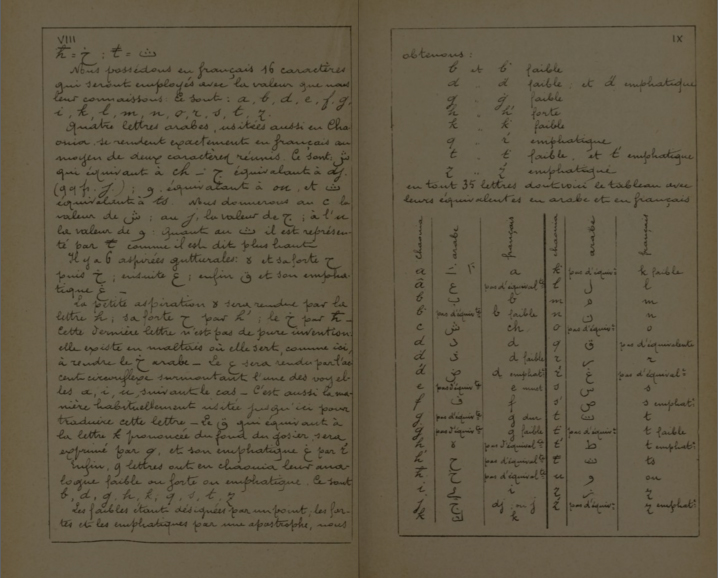 VIII
ħ = خ ; ŧ = ث
Nous possédons en français 16 caractères
qui seront employés avec la valeur que nous
leur connaissons. Ce sont : a, b, d, e, f, g,
i, k, l, m, n, o, r, s, t, z.
Quatre lettres arabes, usitées aussi en Cha
ouïa se rendent exactement en français au
moyen de deux caractères réunis. Ce sont ش
qui équivaut à ch - ج équivalant à dj
; و équivalant à ou ; et ث
équivalant à ts. Nous donnerons au c la
valeur de ش ; au j, la valeur de ج ; à l'
la valeur de و. Quant au ث il est représen-
té par ŧ comme il est dit plus haut.
Il y a 6 aspirées gutturales : ه et sa forte ح
puis خ ; ensuite ع ; enfin ق et son empha
tique غ —
La petite aspiration ه sera rendue par la
lettre h ; sa forte ح par h' ; le خ par ħ —
Cette dernière lettre n'est pas de pure invention
elle existe en maltais où elle sert, comme ici,
à rendre le خ arabe — Le ع sera rendu par l'ac
cent circonflexe surmontant l'une des voyel-
les a, i, suivant le cas — C'est aussi la ma-
nière habituellement usitée jusqu'ici pour
traduire cette lettre — Le ق qui équivaut à
la lettre k prononcée du fond du gosier, sera
exprimé par q, et son emphatique غ par
Enfin, 9 lettres ont en chaouia leur ana-
logue faible ou forte ou emphatique. Ce sont
b, d, g, h, k, q, s, t, z
Les faibles étant désignées par un point, les for-
tes et les emphatiques par une apostrophe, nous
IX
obtenons :
b et b faible
d " d faible, et d emphatique
g " g faible
h " h' forte
k " k faible
q " emphatique
t " t faible, et t emphatique
z " z emphatique
en tout 35 lettres dont voici le tableau avec
leurs équivalentes en arabe et en français
chaouia arabe français chaouia arabe français
a ا a k pas d'équiv. k faible
â ع pas d'équival. l ل l
b ب b m م m
b pas d'équiv. b faible n ن n
c ش ch o pas d'équiv. o
d د d q ق pas d'équivalente
d ذ d faible r ر r
d ض d emphat. غ pas d'équival.
e pas d'équiv. e muet s س s
f ف f s' ص s emphat.
g pas d'équiv. g dur t ت t
g pas d'équiv. g faible t pas d'équiv. t faible
h ه pas d'équival. t ط t emphat.
h' ح pas d'équival. ŧ ث ts
ħ خ pas d'équival. و ou
i i z ز z
j ج dj ou j z pas d'équiv. z emphat.
k ك k